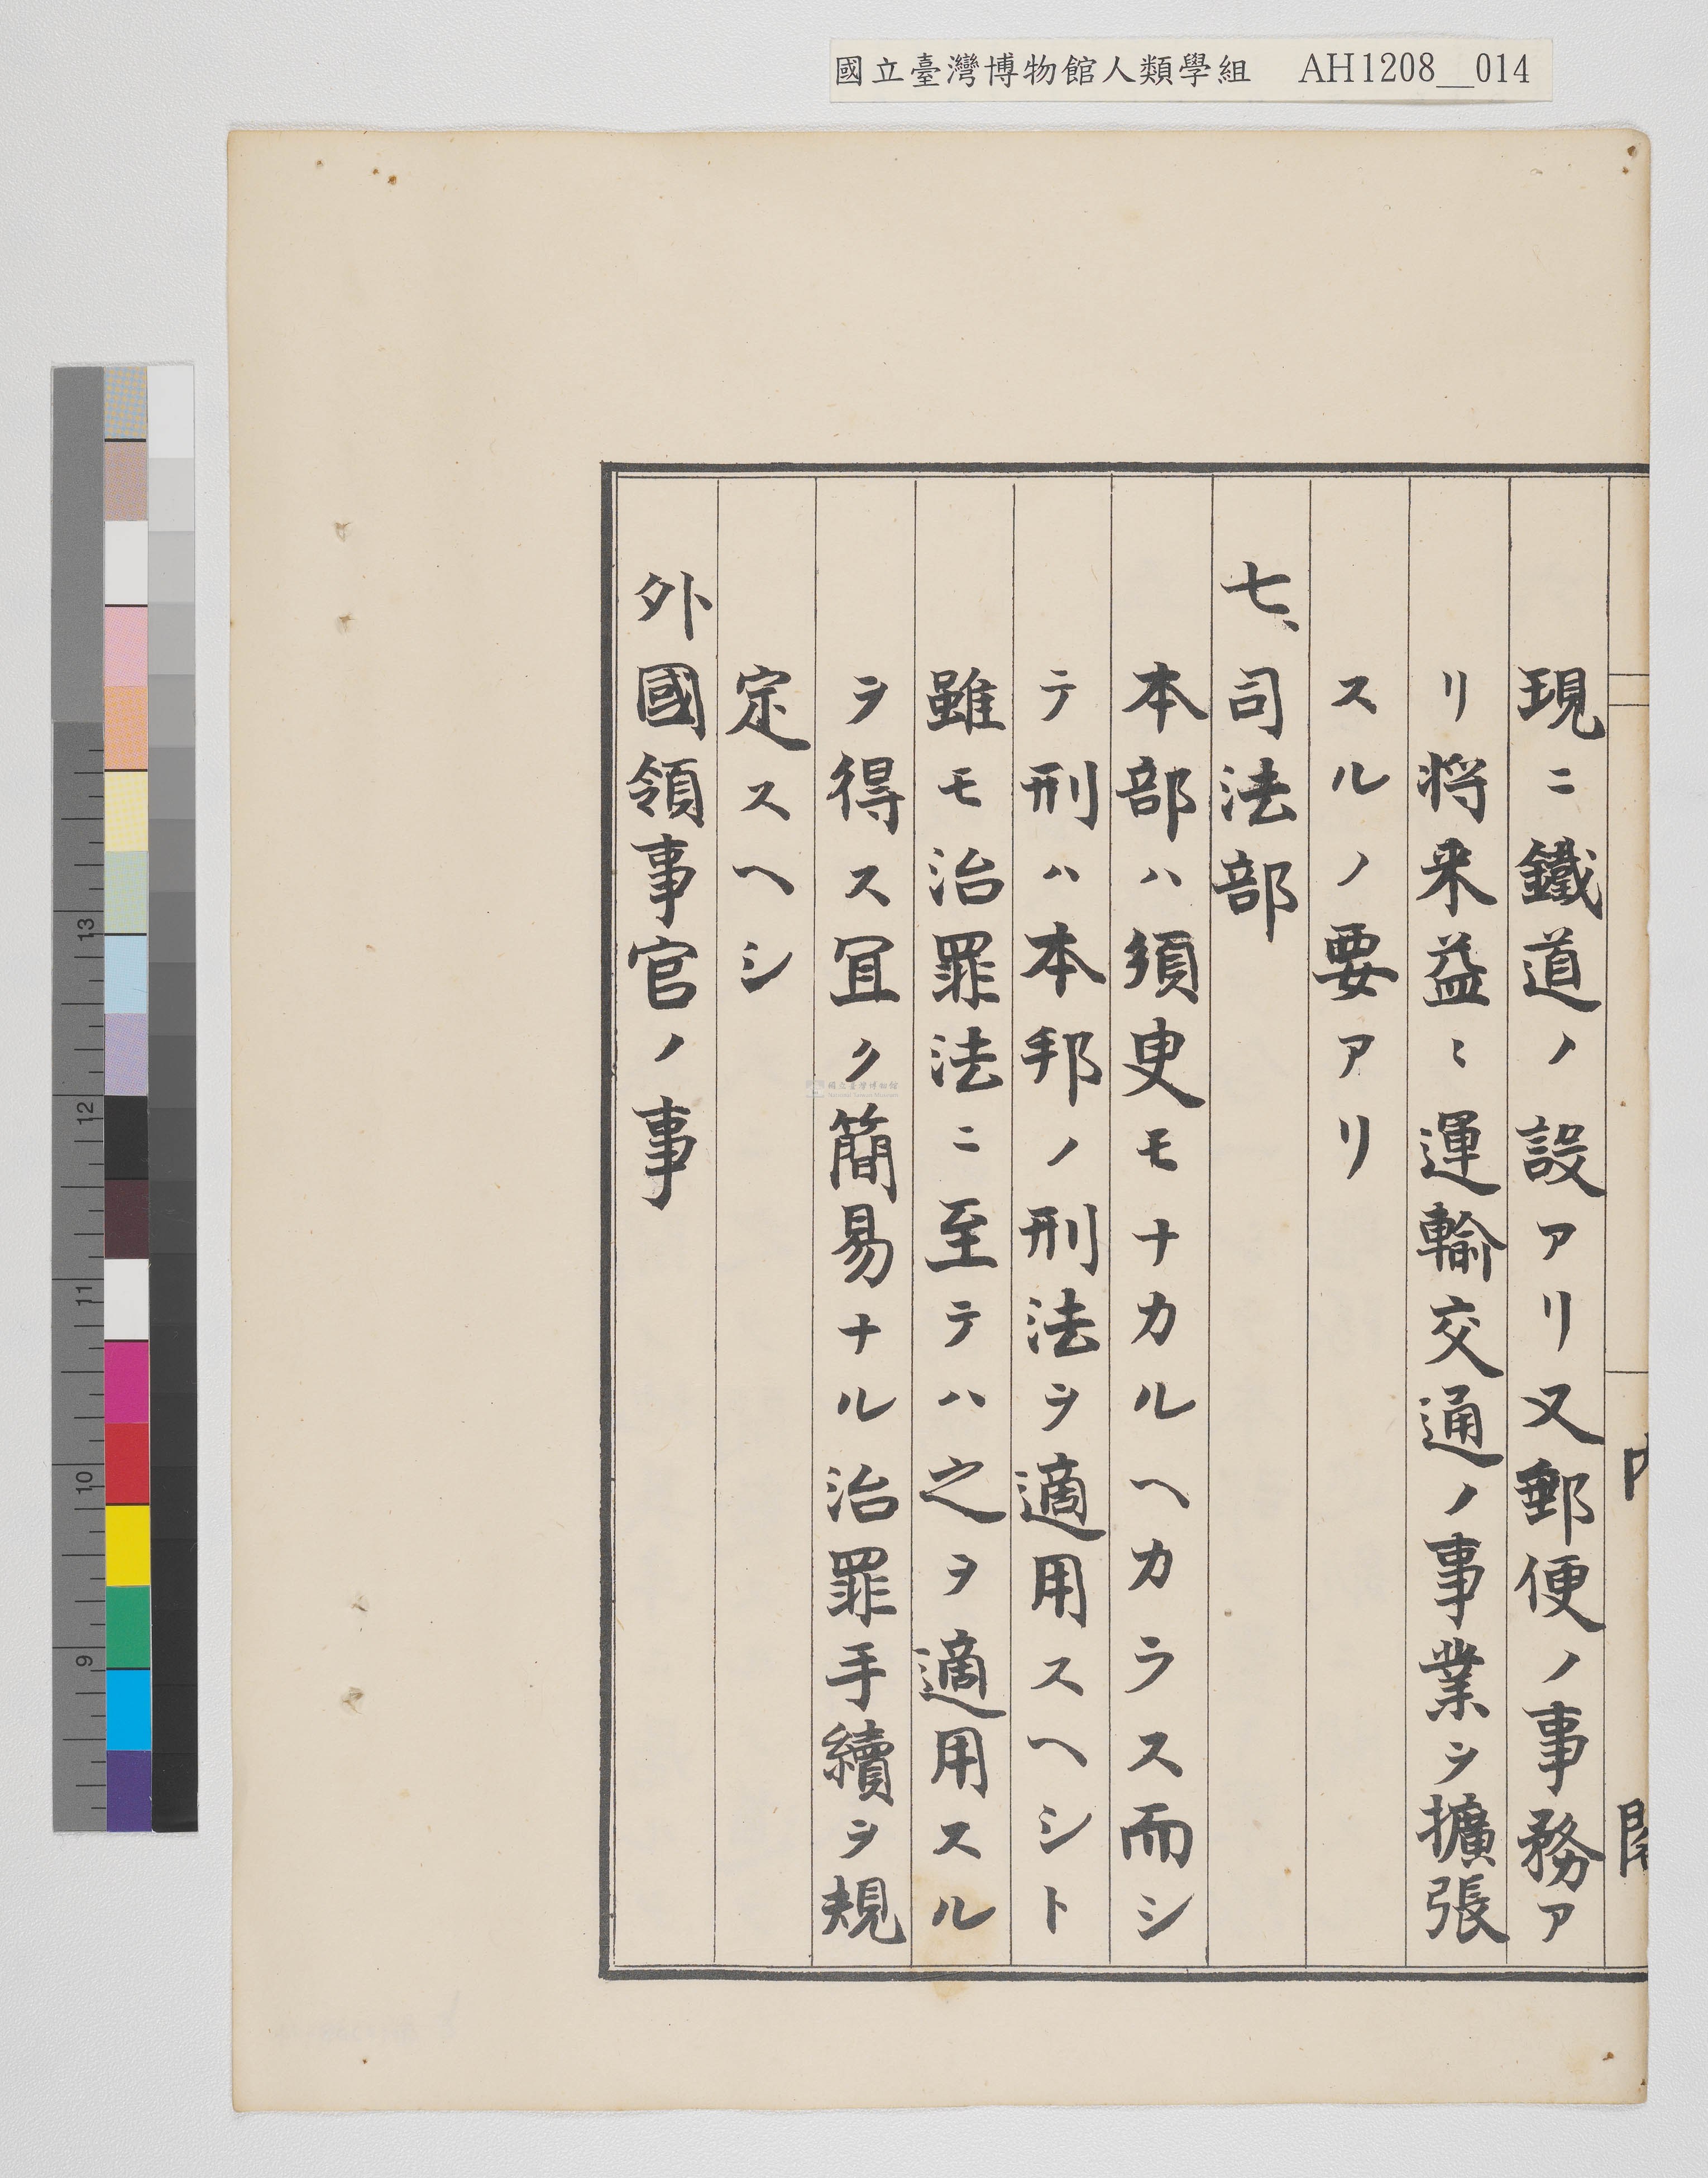 國立臺灣博物館人類學組 AH1208__014
現ニ鐵道ノ設アリ又郵便ノ事務ア
リ将来益ミ運輸交通ノ事業ヲ擴張
スルノ要アリ
七、司法部
本部ハ須叟モナカルヘカラス而シ
テ刑ハ本邦ノ刑法ヲ適用スヘシト
雖モ治罪法ニ至テハ之ヲ適用スル
ヲ得ス冝ク簡易ナル治罪手續ヲ規
定スヘシ
外國領事官ノ事
13
12
11
10
9